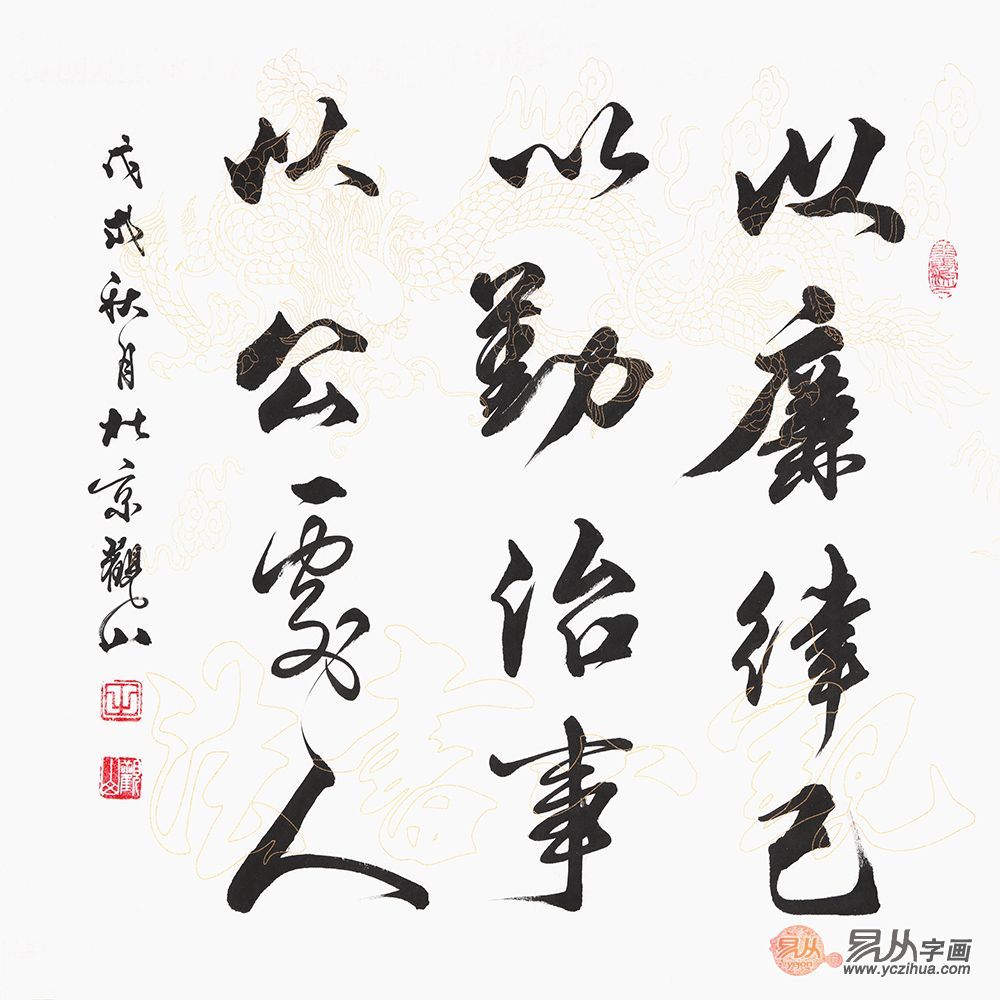 以廉律己
以勤治事
以公處人
戊戌秋月於京觀山
觀山
易从
易从字画
www.yczihua.com